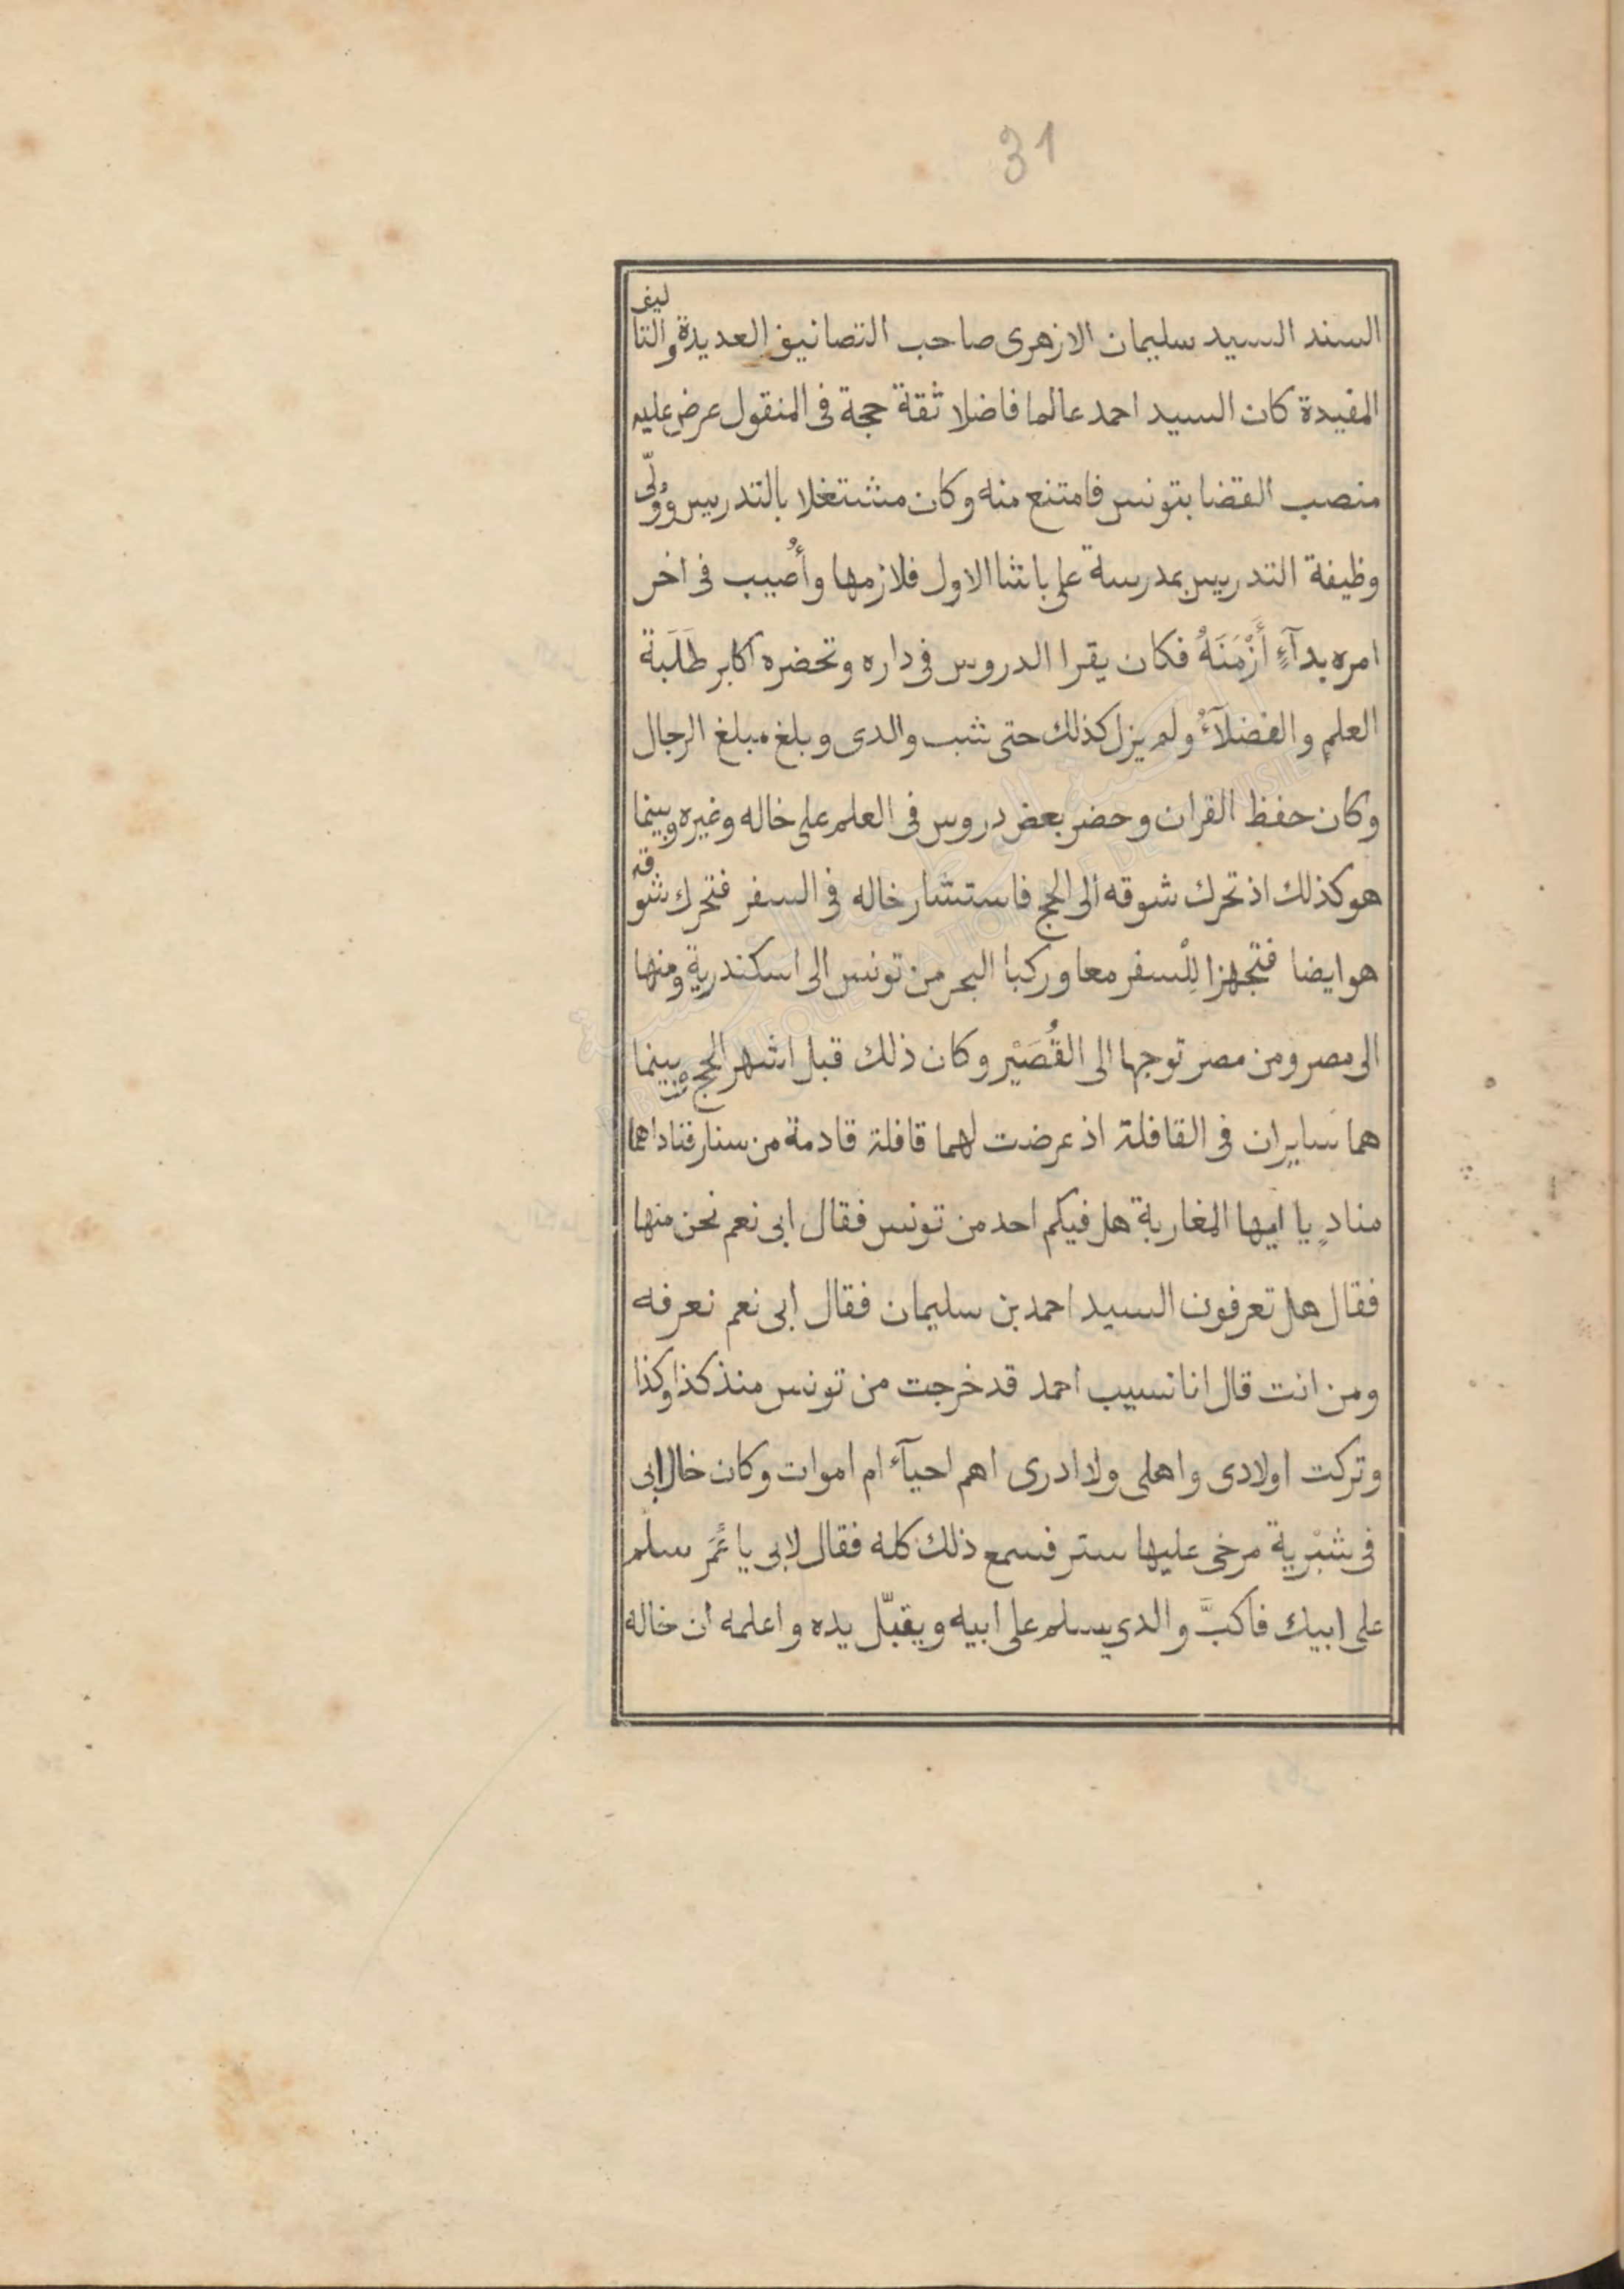 31
السند السيد سليمان الازهرى صاحب التصانيف العديدة والتاليف
المفيدة كان السيد احمد عالما فاضلا ثقة حجة فى المنقول عرض عليه
منصب القضا بتونس فامتنع منه وكان مشتغلا بالتدريس ووُلّى
وظيفة التدريس بمدرسة على باشا الاول فلازمها وأُصيب فى اخر
امره بدآءٍ أَزْمَنَهُ فكان يقرا الدروس فى داره وتحضره اكابر طَلَبة
العلم والفضلآءُ ولم يزل كذلك حتى شب والدى وبلغ مبلغ الرجال
وكان حفظ القران وحضر بعض دروس فى العلم على خاله وغيره وبينما
هو كذلك اذ تحرك شوقه الى الحج فاستشار خاله فى السفر فتحرك شوقه
هو ايضا فتجهزا لِلْسفر معا وركبا البحر من تونس الى اسكندرية ومنها
الى مصر ومن مصر توجها الى القُصَيْر وكان ذلك قبل اشهر الحج بينما
هما سَايِران فى القافلة اذ عرضت لهما قافلة قادمة من سنار فناداهما
منادٍ يا ايها المغاربة هل فيكم احد من تونس فقال ابى نعم نحن منها
فقال هل تعرفون السيد احمد بن سليمان فقال ابى نعم نعرفه
ومن انت قال انا نسيب احمد قد خرجت من تونس منذ كذا وكذا
وتركت اولادى واهلى ولا ادرى اهم احيآء ام اموات وكان خال ابى
فى شبْرية مرخى عليها ستر فسمع ذلك كله فقال لابى يا عُمَر سلّم
على ابيك فاكبَّ والدي يسلم على ابيه ويقبّل يده واعلمه ان خاله